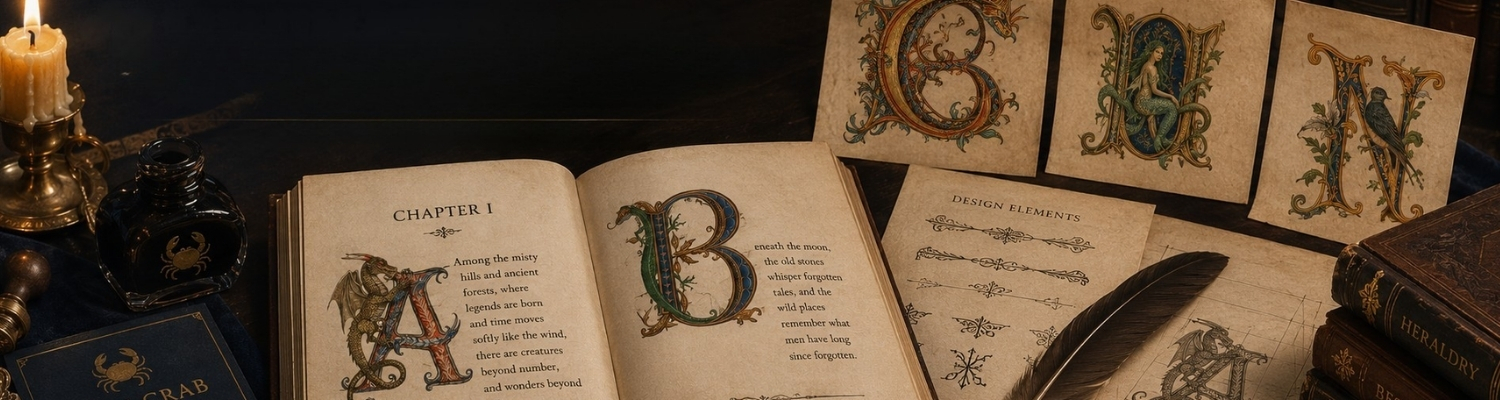 CHAPTER I
A
Among the misty
hills and ancient
forests, where
legends are born
and time moves
softly like the wind,
there are creatures
beyond number,
and wonders beyond
Beneath the moon,
the old stones
whisper forgotten
tales, and the
wild places
remember what
men have long
since forgotten.
G
U
N
DESIGN ELEMENTS
A
HERALDRY
CRAB